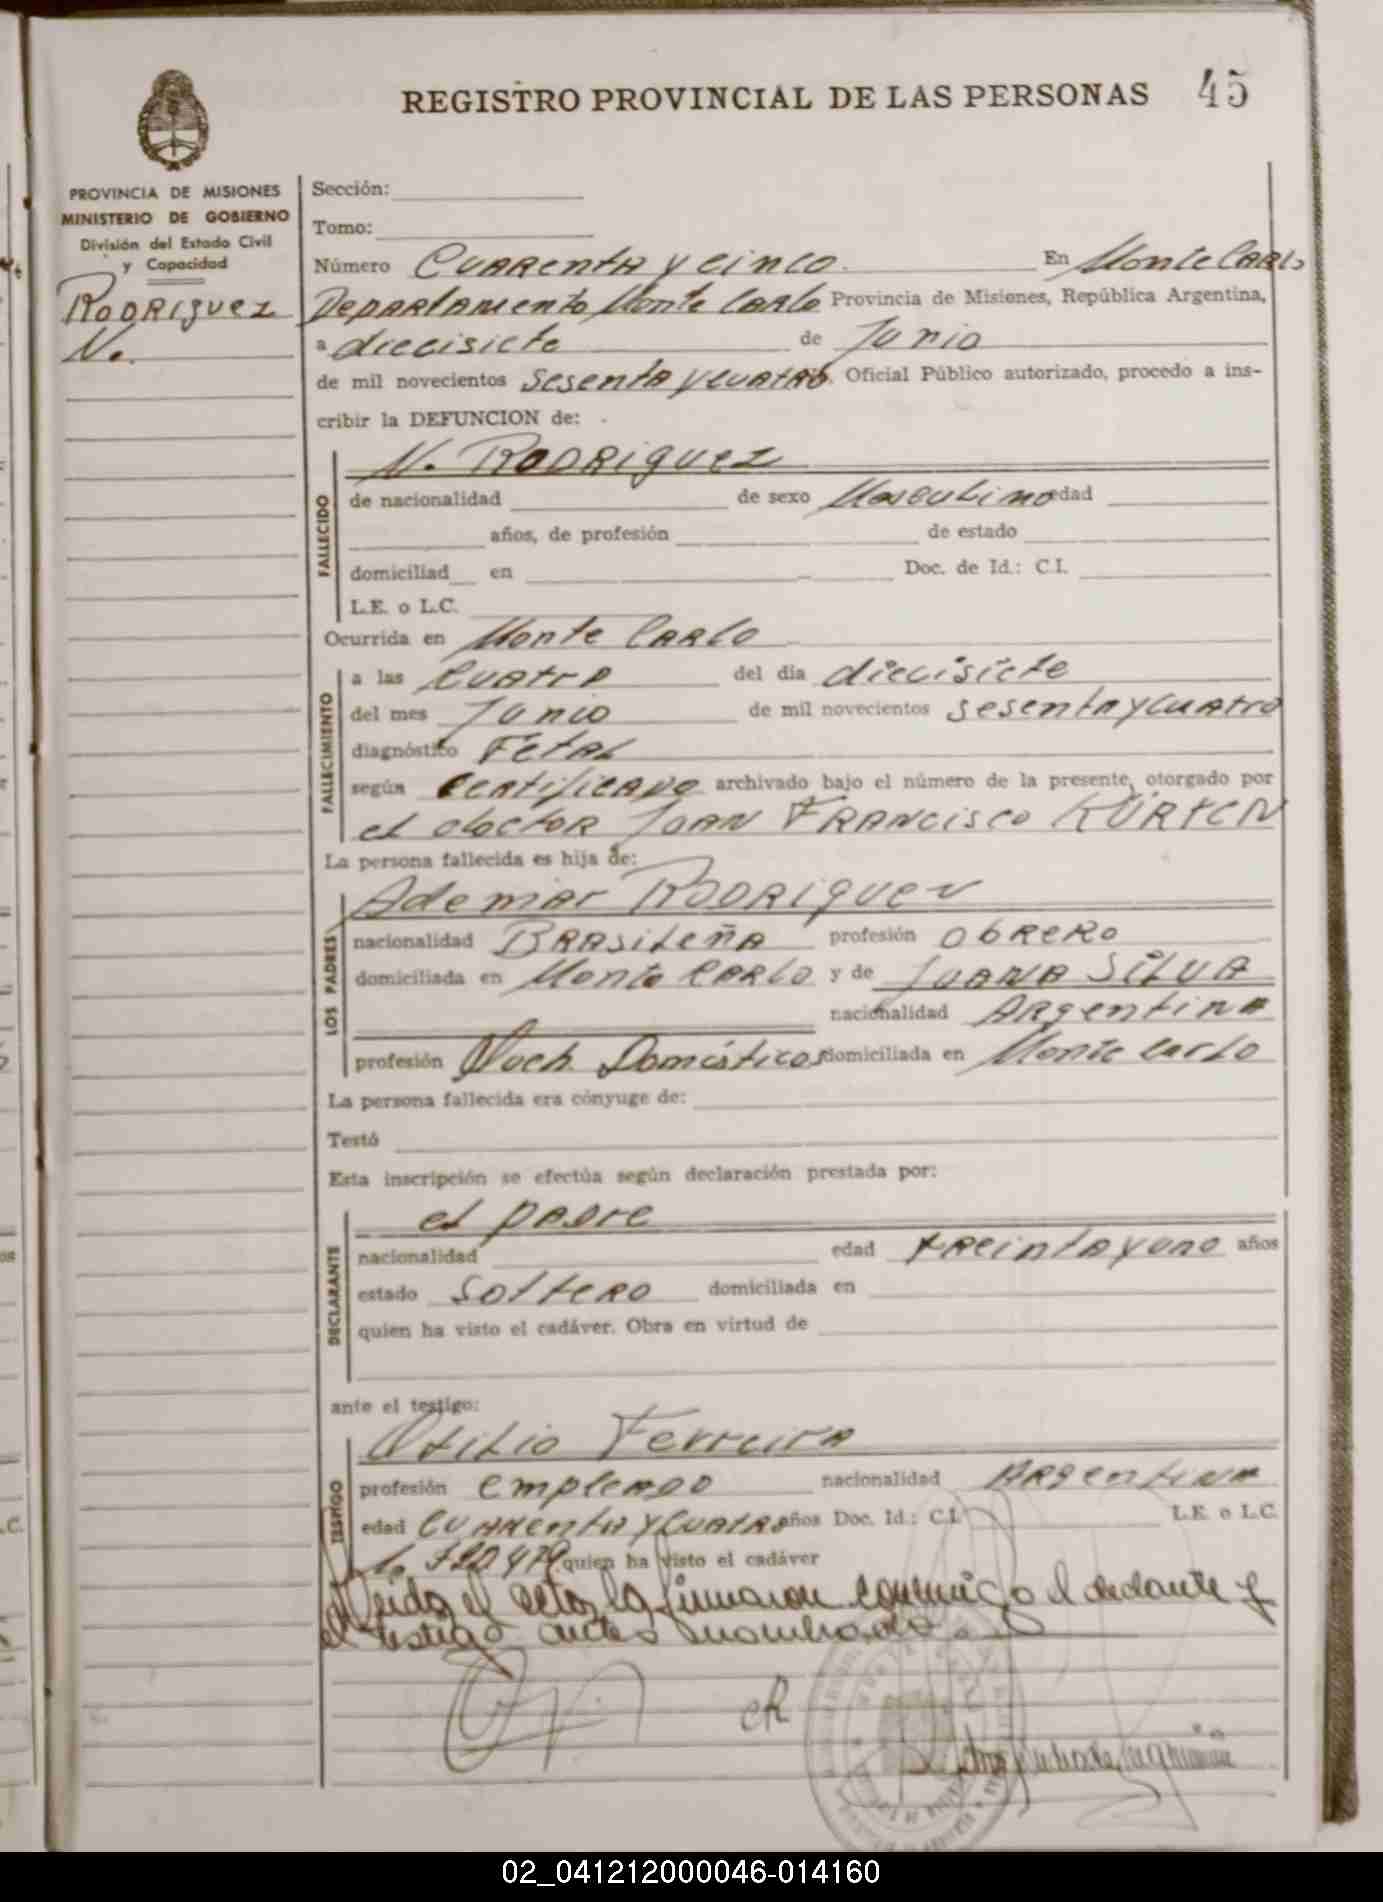 REGISTRO PROVINCIAL DE LAS PERSONAS 45
PROVINCIA DE MISIONES
MINISTERIO DE GOBIERNO
División del Estado Civil
y Capacidad
Rodriguez
N.
Sección:
Tomo:
Número Cuarenta y cinco. En Monte Carlo
Departamento Monte Carlo Provincia de Misiones, República Argentina,
a diecisiete de Junio
de mil novecientos sesenta y cuatro. Oficial Público autorizado, procedo a ins-
cribir la DEFUNCION de:
FALLECIDO
N. Rodriguez
de nacionalidad de sexo Masculino edad
años, de profesión de estado
domiciliad en Doc. de Id.: C.I.
L.E. o L.C.
Ocurrida en Monte Carlo
FALLECIMIENTO
a las Cuatro del día diecisiete
del mes Junio de mil novecientos sesenta y cuatro
diagnóstico Fetal
según certificado archivado bajo el número de la presente, otorgado por
el doctor Juan Francisco KÜRTEN
La persona fallecida es hija de:
LOS PADRES
Ademar Rodriguez
nacionalidad Brasileña profesión obrero
domiciliada en Monte Carlo y de Juana Silva
nacionalidad Argentina
profesión Domésticos domiciliada en Monte Carlo
La persona fallecida era cónyuge de:
Testó
Esta inscripción se efectúa según declaración prestada por:
DECLARANTE
el padre
nacionalidad edad treinta y uno años
estado soltero domiciliada en
quien ha visto el cadáver. Obra en virtud de
ante el testigo:
TESTIGO
Otilio Ferreira
profesión empleado nacionalidad Argentina
edad cuarenta y cuatro años Doc. Id.: C.I. L.E. o L.C.
quien ha visto el cadáver
Leida el acta, la firmaron conmigo el declarante y
el testigo antes nombrado
02_041212000046-014160